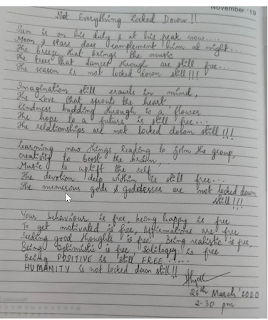 November '19
Not Everything Locked Down !!
Sun is on his duty & at his peak now...
Moon & stars does complement him at night.
The breeze that brings the music
The trees that dances through are still free...
The season is not locked down still !!!
Imagination still crawls in mind,
The love that spreads the heart
Kindness budding through is a flower
The hope to a future is still free...
The relationships are not locked down still !!!
Learning new things leading to join the group,
creativity to boost the
Music to uplift the self
The devotion deep within is still free...
The numerous gods & goddesses are not locked down
still !!!
Your behaviour is free, being happy is free
To get motivated is free, affirmations are free
Seeking good thoughts is free, being realistic is free
Being optimistic is free, is free
Being POSITIVE is still FREE ....
HUMANITY is not locked down still !!
26th March '2020
2:30 pm